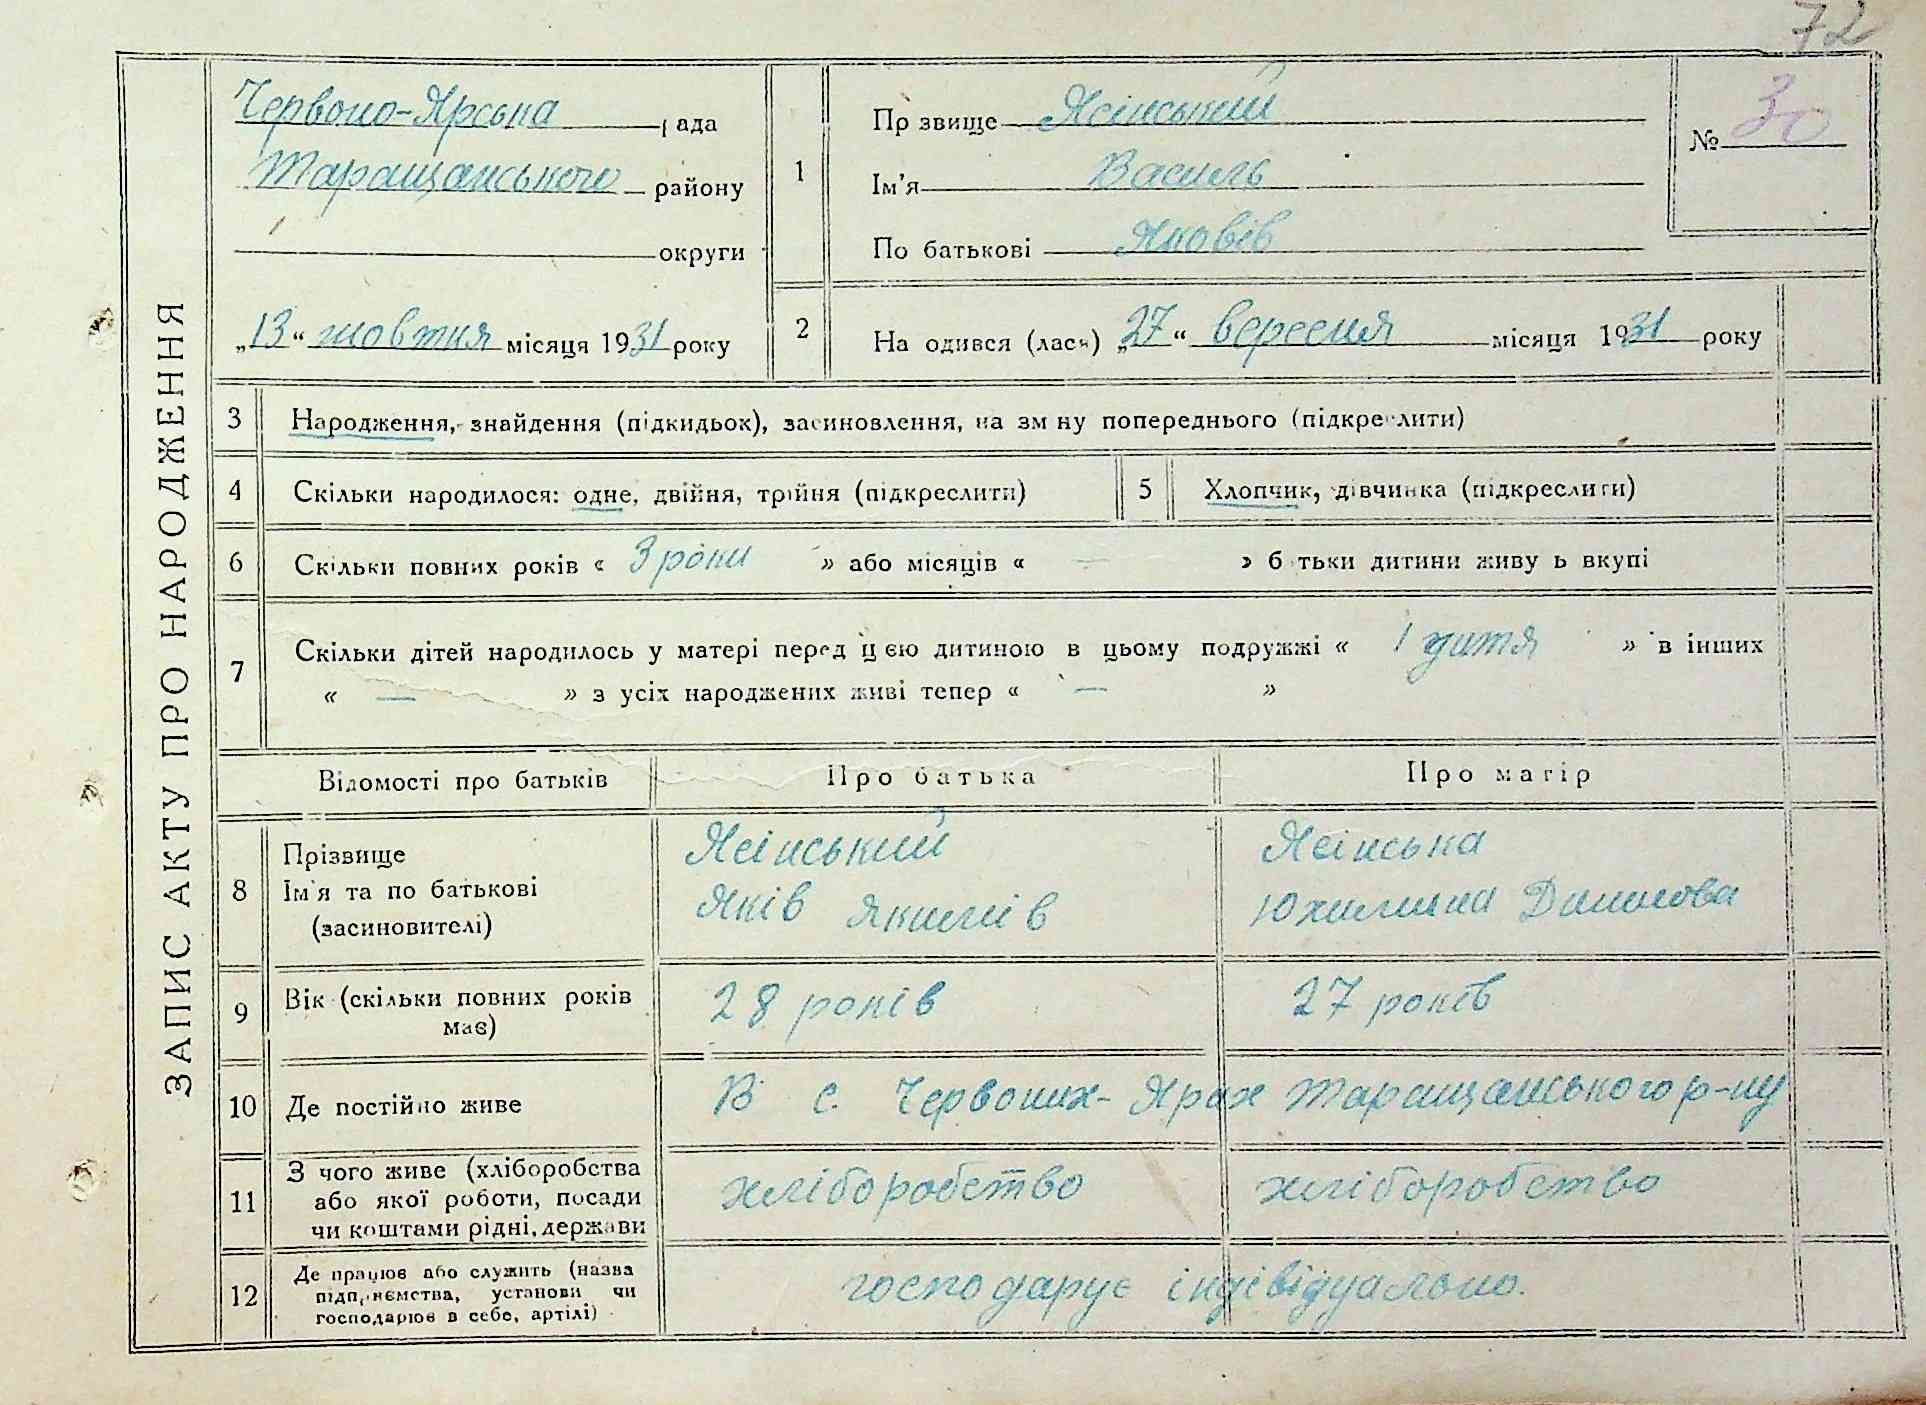 72
ЗАПИС АКТУ ПРО НАРОДЖЕННЯ
Червоно-Ярська рада
Таращанського району
округи
„13“ жовтня місяця 1931 року
1
Прізвище Ясінський
Ім'я Василь
По батькові Яковів
№ 30
2
Народився (лася) „27“ вересня місяця 1931 року
3 Народження, знайдення (підкидьох), засиновлення, на зміну попереднього (підкреслити)
4 Скільки народилося: одне, двійня, трійня (підкреслити)
5 Хлопчик, дівчинка (підкреслити)
6 Скільки повних років « 3 роки » або місяців « — » батьки дитини живуть вкупі
7 Скільки дітей народилось у матері перед цією дитиною в цьому подружжі « 1 дитя » в інших
« — » з усіх народжених живі тепер « — »
Відомості про батьків Про батька Про матір
8 Прізвище
Ім'я та по батькові
(засиновителі)
Ясінський
Яків Якимів
Ясінська
Юхимина
9 Вік (скільки повних років
має)
28 років 27 років
10 Де постійно живе В с. Червоних-Ярах Таращанського р-ну
11 З чого живе (хліборобства
або якої роботи, посади
чи коштами рідні, держави
хліборобство хліборобство
12 Де працює або служить (назва
підприємства, установи чи
господарює в себе, артілі)
господарує індівідуально.